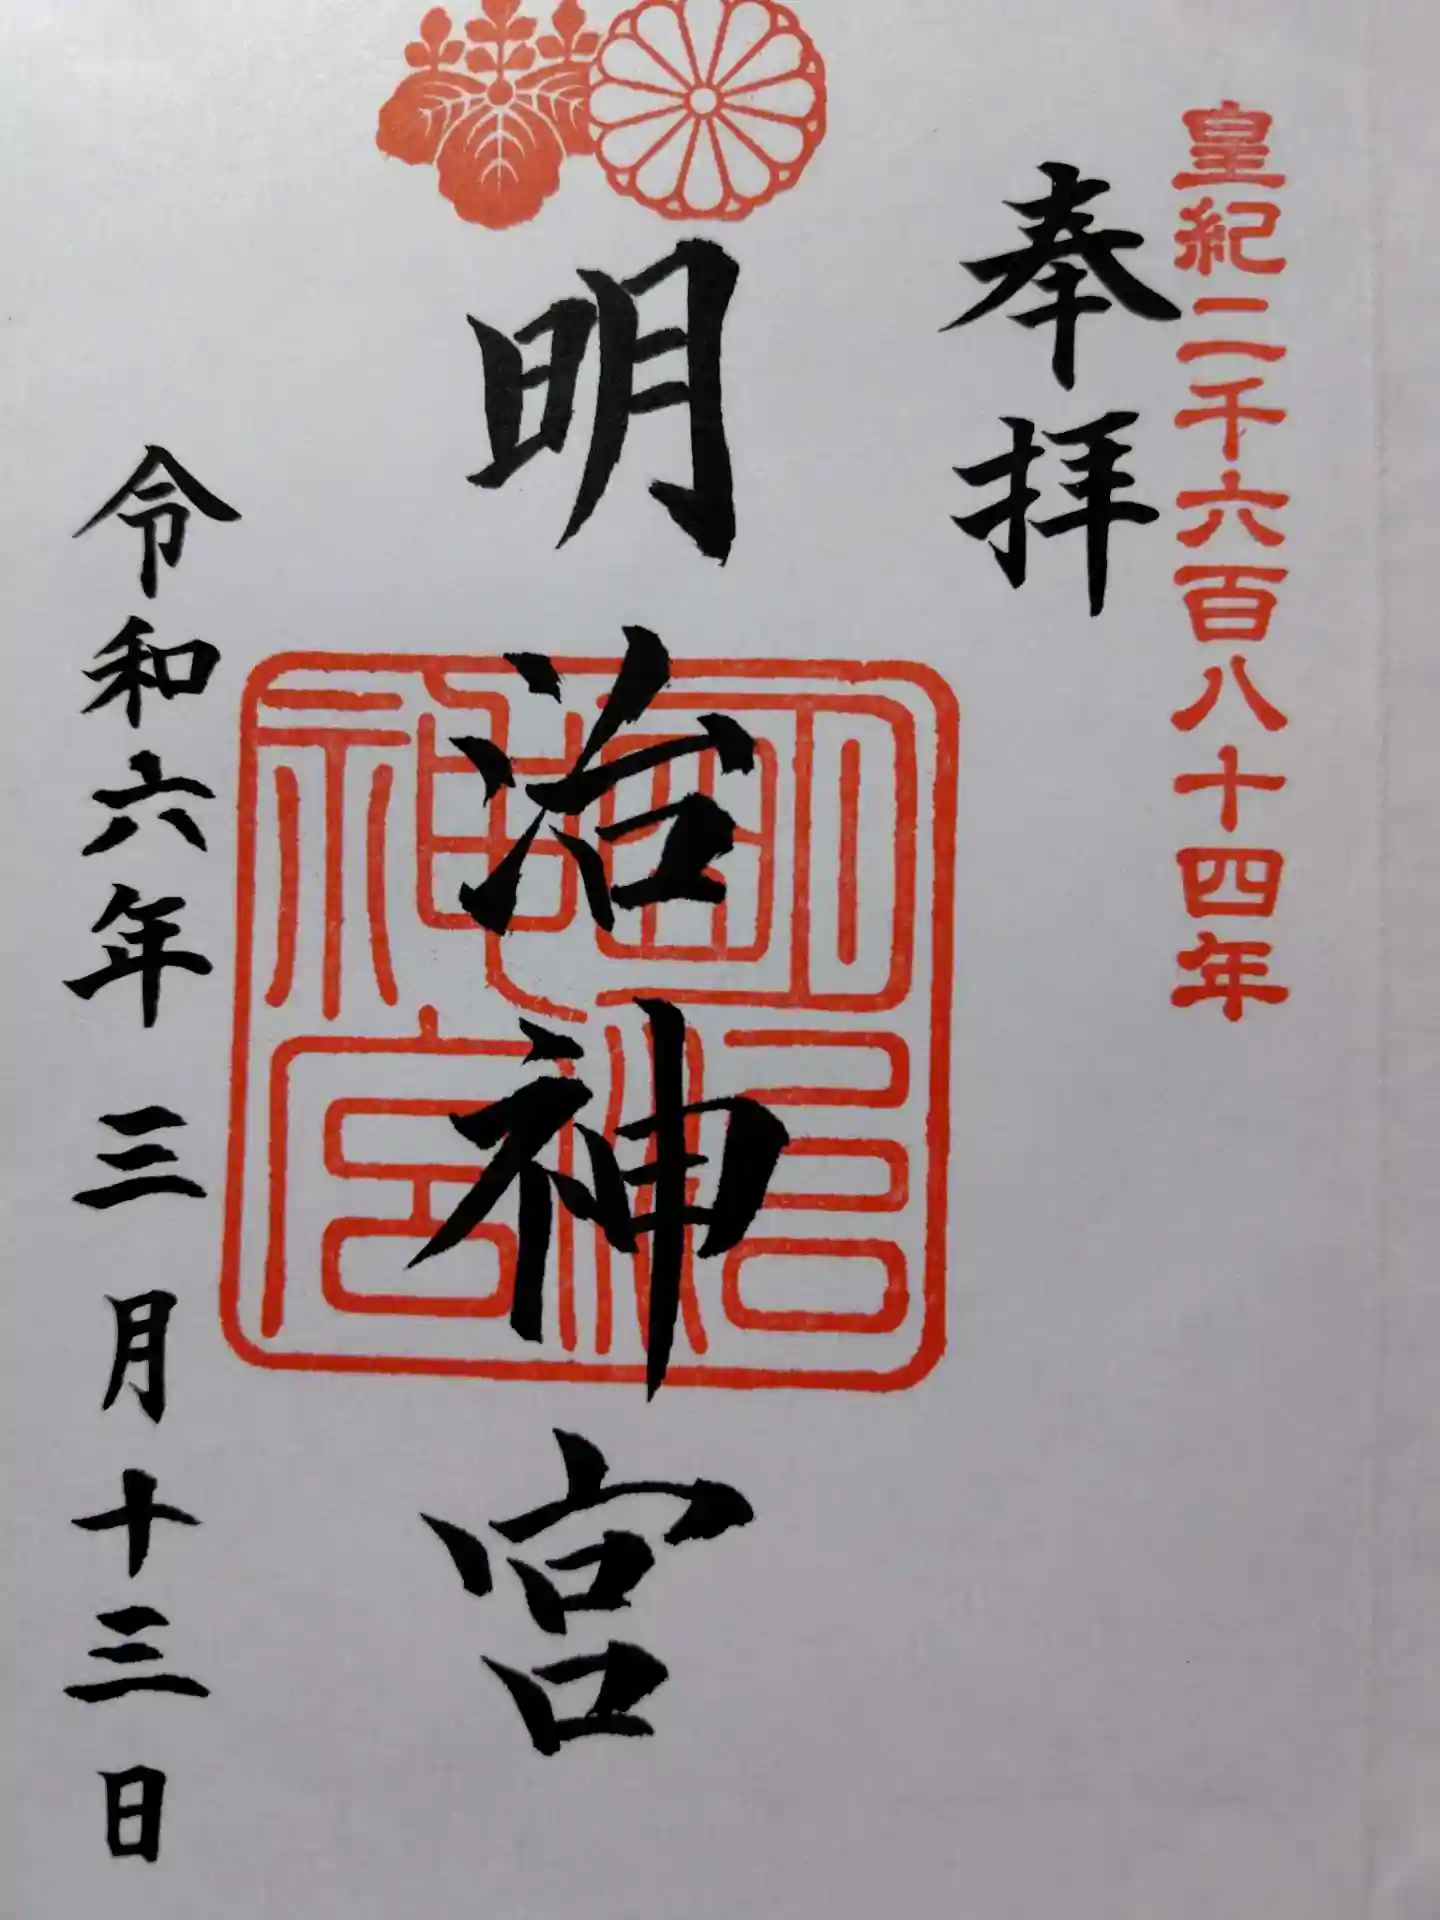 皇紀二千六百八十四年
奉拝
明治神宮
明治神宮
令和六年三月十三日